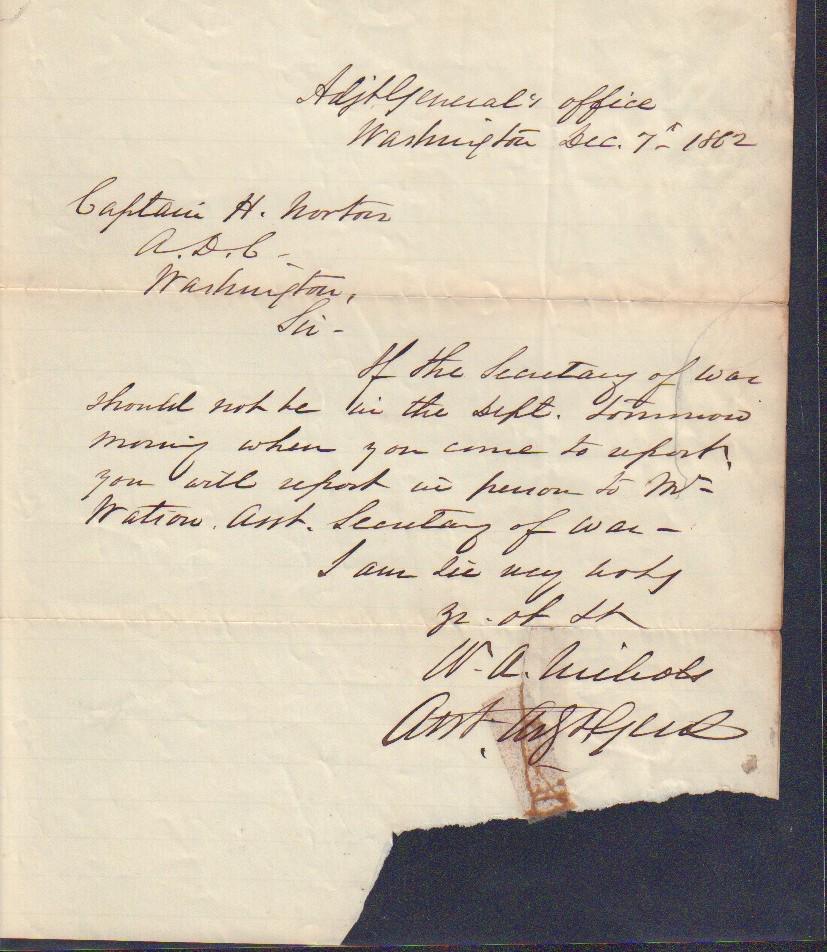 Adjt General's office
Washington Dec. 7th 1862
Captain H. Norton
A. D. C.
Washington,
Sir -
If the Secretary of War
should not be in the Dept. tommorow
morning when you come to report,
you will report in person to Mr
Watson. Asst. Secretary of War -
I am Sir very
yr. ob St
W. A. Nichols
Asst. Adjt Genl